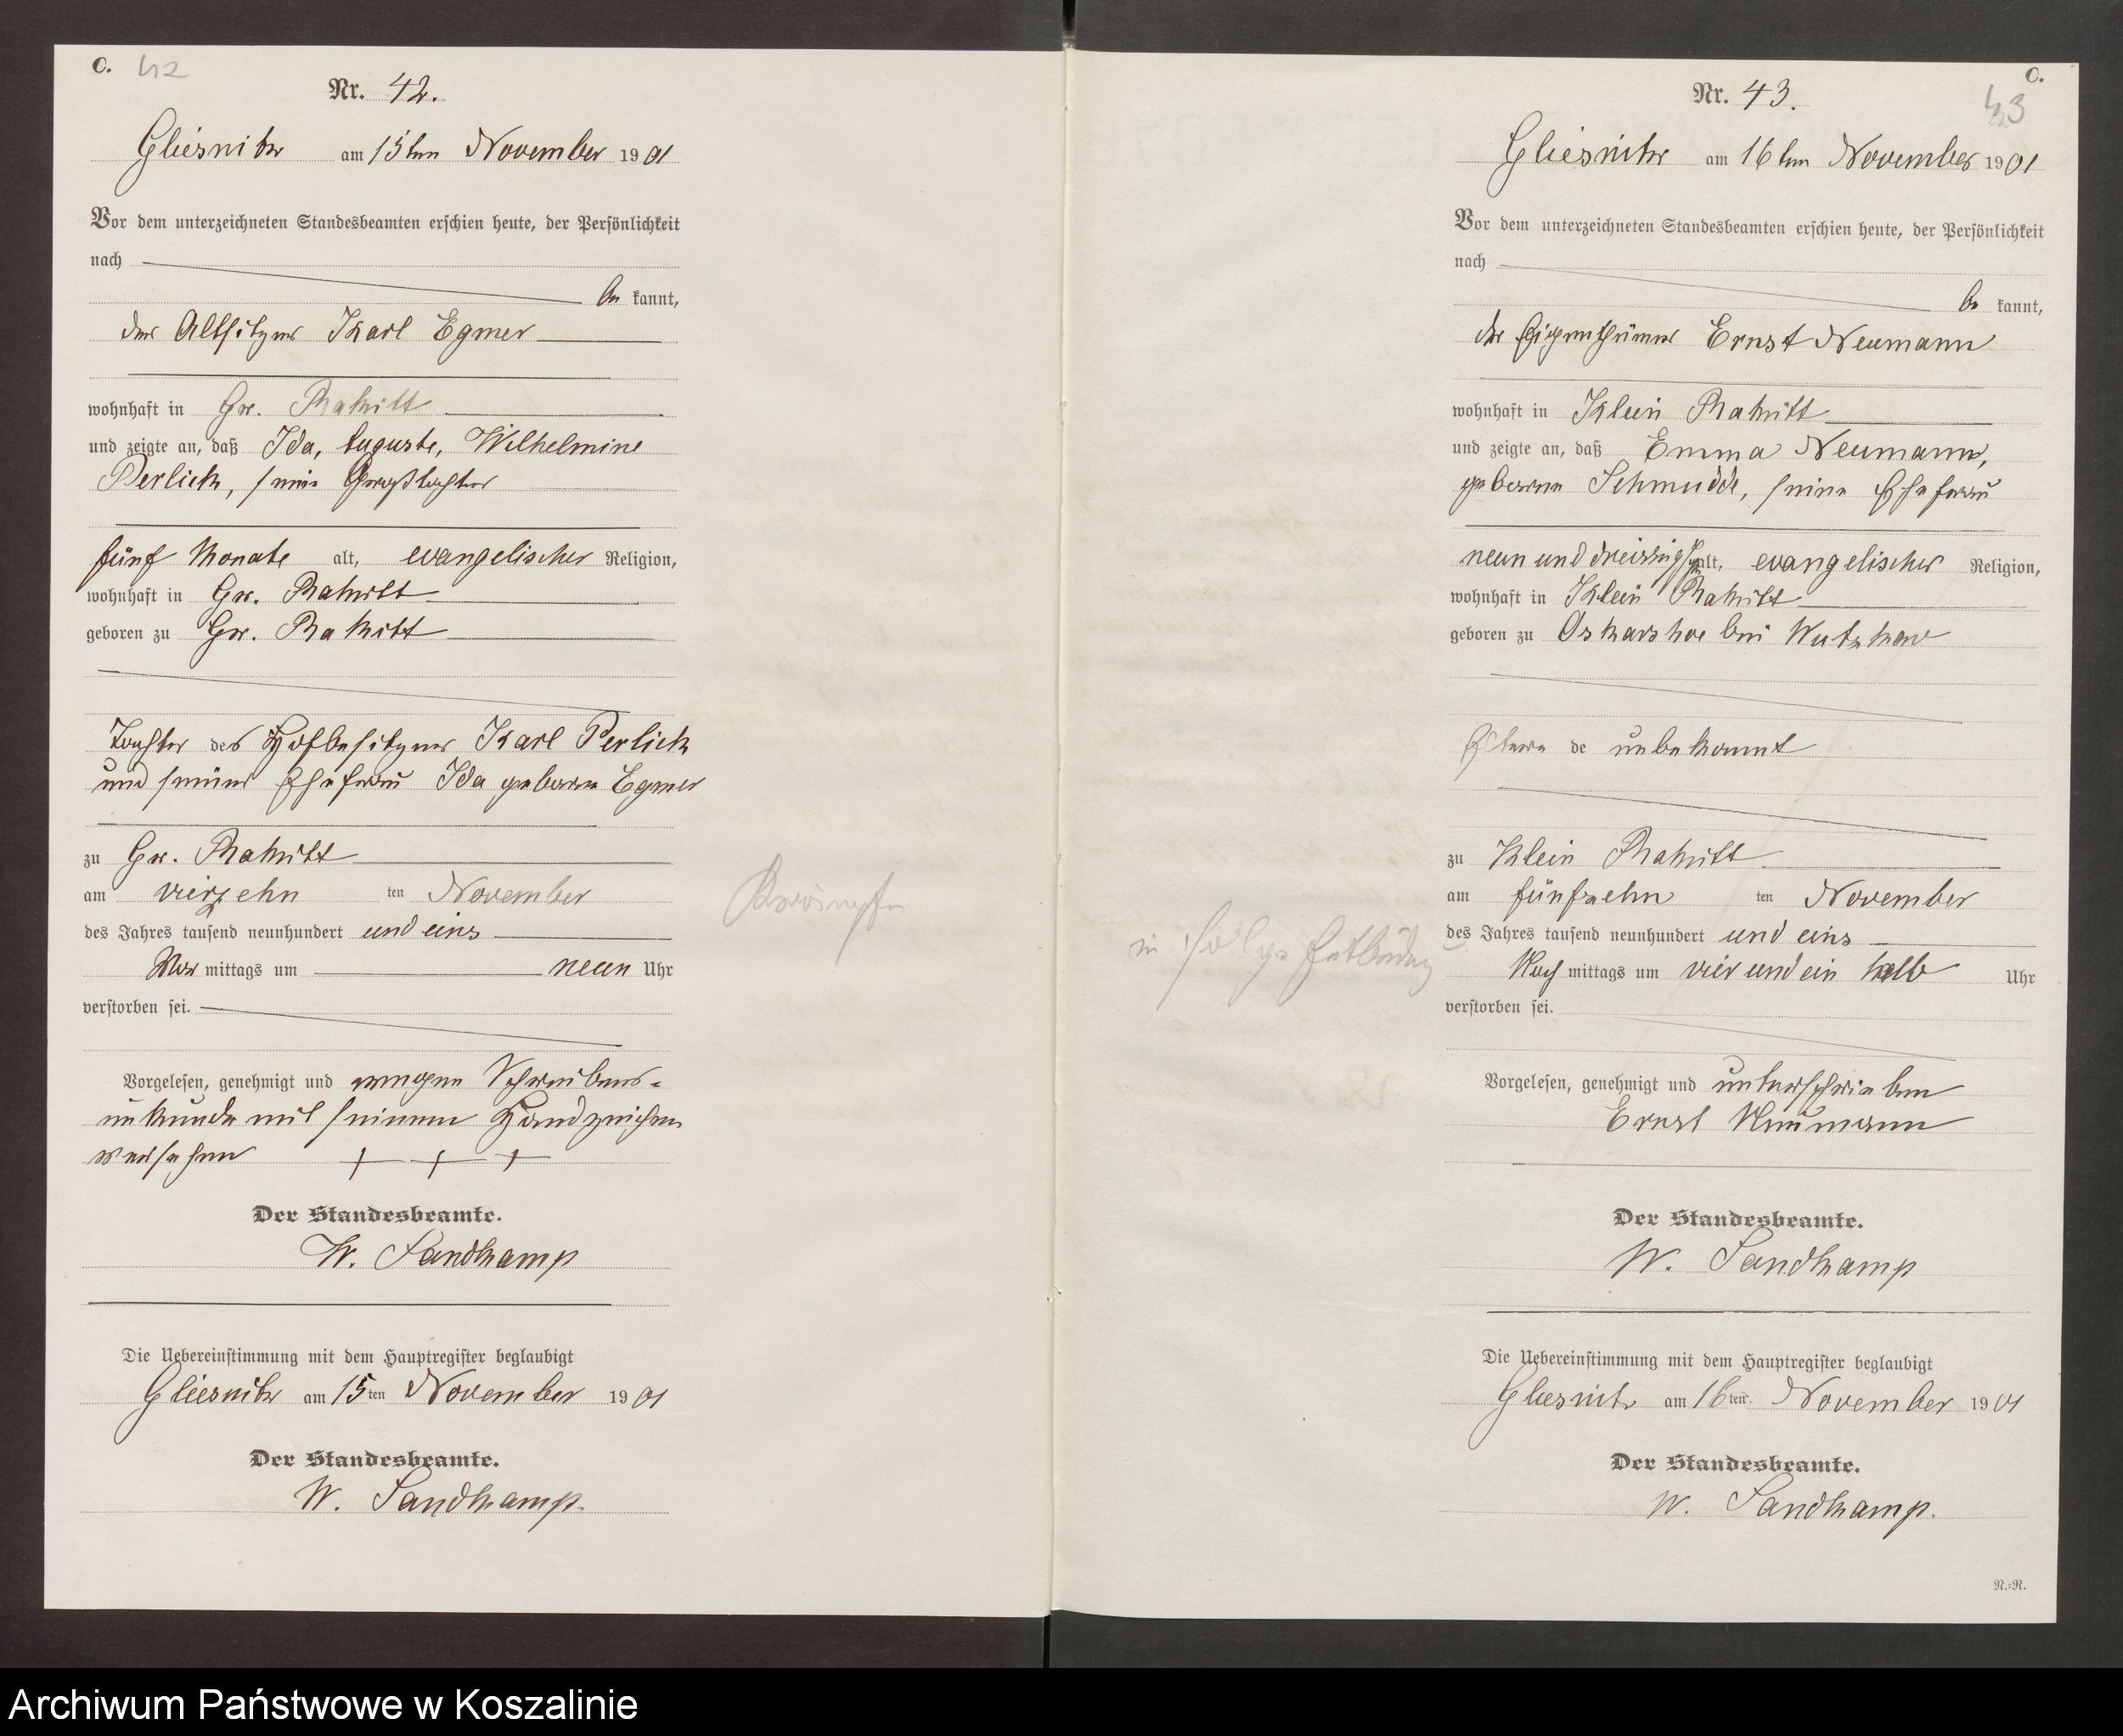 C. 42
Nr. 42.
Gliesnitz am 15ten November 1901
Vor dem unterzeichneten Standesbeamten erschien heute, der Persönlichkeit
nach
be kannt,
der Altsitzer Karl Egmer
wohnhaft in Gr. Rakitt
und zeigte an, daß Ida, Auguste, Wilhelmine
Perlick, seine Großtochter
fünf Monate alt, evangelischer Religion,
wohnhaft in Gr. Rakitt
geboren zu Gr. Rakitt
Tochter des Hofbesitzers Karl Perlick
und seiner Ehefrau Ida geborne Egmer
zu Gr. Rakitt
am vierzehn ten November
des Jahres tausend neunhundert und eins
Vor mittags um neun Uhr
verstorben sei.
Vorgelesen, genehmigt und wegen Schreibens-
unkunde mit seinem Handzeichen
versehen + + +
Der Standesbeamte.
W. Sandkamp
Die Uebereinstimmung mit dem Hauptregister beglaubigt
Gliesnitz am 15ten November 1901
Der Standesbeamte.
W. Sandkamp.
Krämpfe
C.
43
Nr. 43.
Gliesnitz am 16ten November 1901
Vor dem unterzeichneten Standesbeamten erschien heute, der Persönlichkeit
nach
be kannt,
der Eigenthümer Ernst Neumann
wohnhaft in Klein Rakitt
und zeigte an, daß Emma Neumann,
geborne Schmudde, seine Ehefrau
neun und dreissig J. alt, evangelischer Religion,
wohnhaft in Klein Rakitt
geboren zu Oskarshoe bei Wutzkow
Eltern de unbekannt
zu Klein Rakitt
am fünfzehn ten November
des Jahres tausend neunhundert und eins
Nach mittags um vier und ein halb Uhr
verstorben sei.
Vorgelesen, genehmigt und unterschrieben
Ernst Neumann
Der Standesbeamte.
W. Sandkamp
Die Uebereinstimmung mit dem Hauptregister beglaubigt
Gliesnitz am 16ten November 1901
Der Standesbeamte.
W. Sandkamp.
in Folge Entbindung
N.=R.
Archiwum Państwowe w Koszalinie